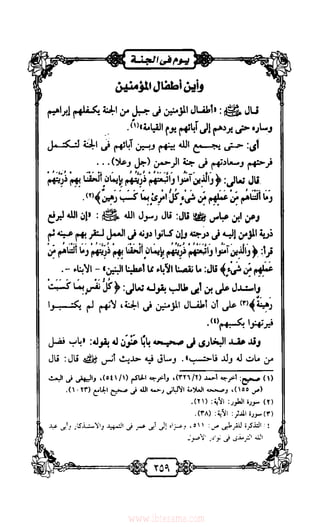 يوم فى الجنة
وأين أطفال المؤمنين
قال ﷺ: «أطفال المؤمنين فى جبل من الجنة يكفلهم إبراهيم
وساره حتى يردهم إلى آبائهم يوم القيامة»(١).
أى: حتى يجمع الله بينهم وبين آبائهم فى الجنة لتكتمل
فرحتهم وسعادتهم فى جنة الرحمن (جل وعلا)...
قال تعالى: ﴿وَالَّذِينَ آمَنُوا وَاتَّبَعَتْهُمْ ذُرِّيَّتُهُم بِإِيمَانٍ أَلْحَقْنَا بِهِمْ ذُرِّيَّتَهُمْ
وَمَا أَلَتْنَاهُم مِّنْ عَمَلِهِم مِّن شَيْءٍ كُلُّ امْرِئٍ بِمَا كَسَبَ رَهِينٌ﴾(٢).
وعن ابن عباس ﷺ قال: قال رسول الله ﷺ: «إن الله ليرفع
ذرية المؤمن إليه فى درجته وإن كانوا دونه فى العمل لتقر بهم عينه ثم
قرأ: ﴿وَالَّذِينَ آمَنُوا وَاتَّبَعَتْهُمْ ذُرِّيَّتُهُم بِإِيمَانٍ أَلْحَقْنَا بِهِمْ ذُرِّيَّتَهُمْ وَمَا أَلَتْنَاهُم مِّنْ
عَمَلِهِم مِّن شَيْءٍ﴾ قال: ما نقصنا الآباء مما أعطينا البنين» - الأبناء -.
واستدل على بن أبى طالب بقوله تعالى: ﴿كُلُّ نَفْسٍ بِمَا كَسَبَتْ
رَهِينَةٌ﴾(٣) على أن أطفال المؤمنين فى الجنة، لأنهم لم يكتسبوا
فيرتهنوا بكسبهم(٤).
وقد عقد البخارى فى صحيحه بابًا عنون له بقوله: «باب فضل
من مات له ولد فاحتسب». وساق فيه حديث أنس ﷺ قال: قال
(١) صحيح: أخرجه أحمد (٣٢٦/٢)، وأخرجه الحاكم (٥٤١/١)، والبيهقى فى البعث
(ص ١٥٥)، وصححه العلامة الألبانى رحمه الله فى صحيح الجامع (١٠٢٣).
(٢) سورة الطور: الآية: (٢١).
(٣) سورة المدثر: الآية: (٣٨).
(٤) التذكرة للقرطبى ص: ٥١١، وعزاه إلى أبى عمر فى التمهيد والاستذكار، وأبى عبد
الله الترمذى فى نوادر الأصول.
٣٥٩
www.ibtesama.com